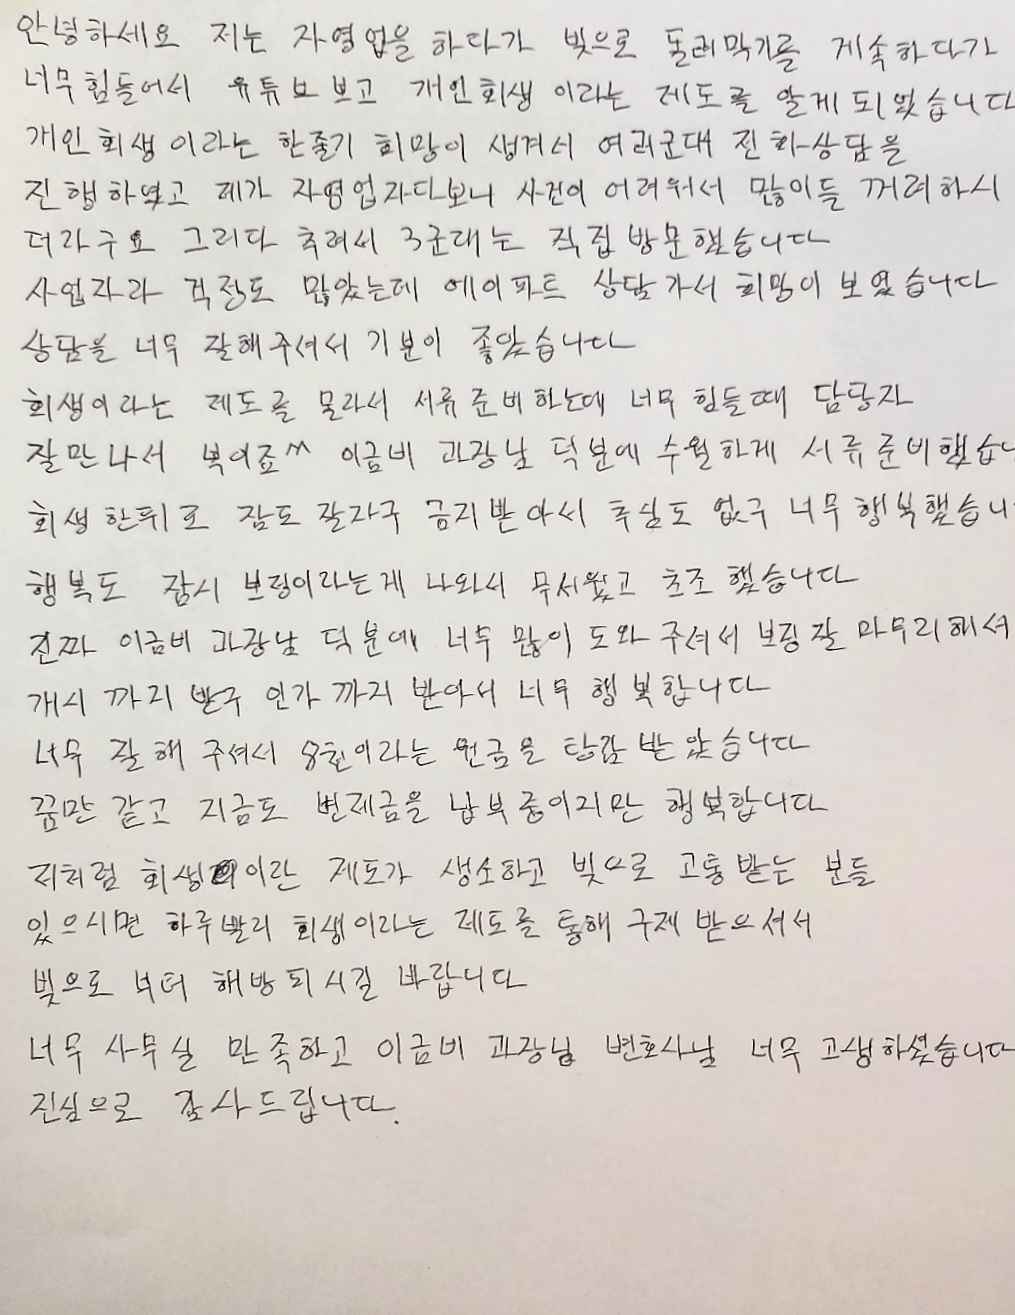 안녕하세요 저는 자영업을 하다가 빚으로 돌려막기를 계속하다가
너무힘들어서 유튜브보고 개인회생 이라는 제도를 알게되었습니다
개인회생 이라는 한줄기 희망이 생겨서 여러군데 전화상담을
진행하였고 제가 자영업자다보니 사건이 어려워서 많이들 꺼려하시
더라구요 그러다 추려서 3군데는 직접방문했습니다
사업자라 걱정도 많았는데 에이파트 상담가서 희망이 보였습니다
상담을 너무 잘해주셔서 기분이 좋았습니다
회생이라는 제도를 몰라서 서류준비하는데 너무힘들때 담당자
잘만나서 복이죠^^ 이금비 과장님 덕분에 수월하게 서류준비했습니
회생한뒤로 잠도 잘자구 금지받아서 추심도 없구 너무행복했습니
행복도 잠시 보정이라는게 나와서 무서웠고 초조했습니다
진짜 이금비 과장님 덕분에 너무 많이 도와주셔서 보정잘 마무리해서
개시 까지 받구 인가까지 받아서 너무 행복합니다
너무 잘해 주셔서 8천이라는 원금을 탕감받았습니다
꿈만 같고 지금도 변제금을 납부중이지만 행복합니다
저처럼 회생이란 제도가 생소하고 빚으로 고통받는 분들
있으시면 하루빨리 회생이라는 제도를 통해 구제받으셔서
빚으로 부터 해방되시길 바랍니다
너무 사무실 만족하고 이금비 과장님 변호사님 너무 고생하셨습니다
진심으로 감사드립니다.